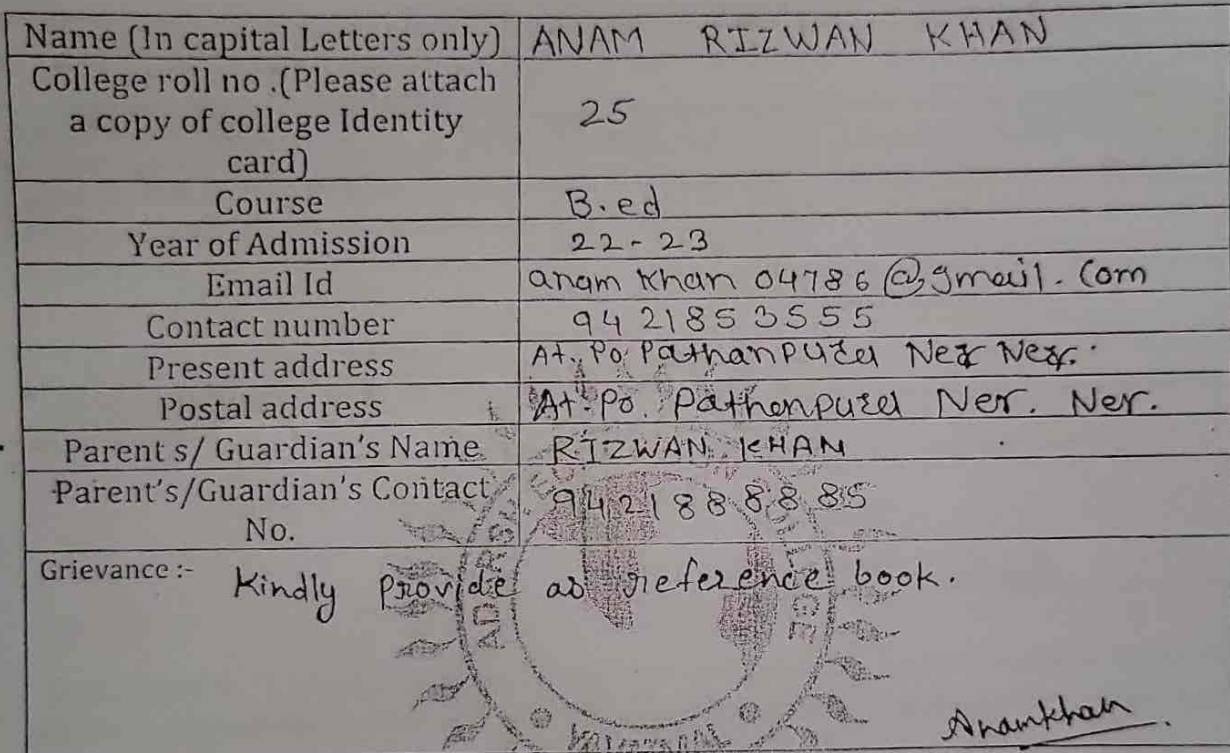 Name (In capital Letters only) ANAM RIZWAN KHAN
College roll no .(Please attach
a copy of college Identity
card)
25
Course B.ed
Year of Admission 22-23
Email Id anam khan 04786@gmail.com
Contact number 9421853555
Present address At. Po. Pathanpura Ner Ner.
Postal address At. Po. Pathenpura Ner. Ner.
Parent s/ Guardian's Name RIZWAN KHAN
Parent's/Guardian's Contact
No.
9421888885
Grievance :- Kindly Provide as reference book.
Anamkhan